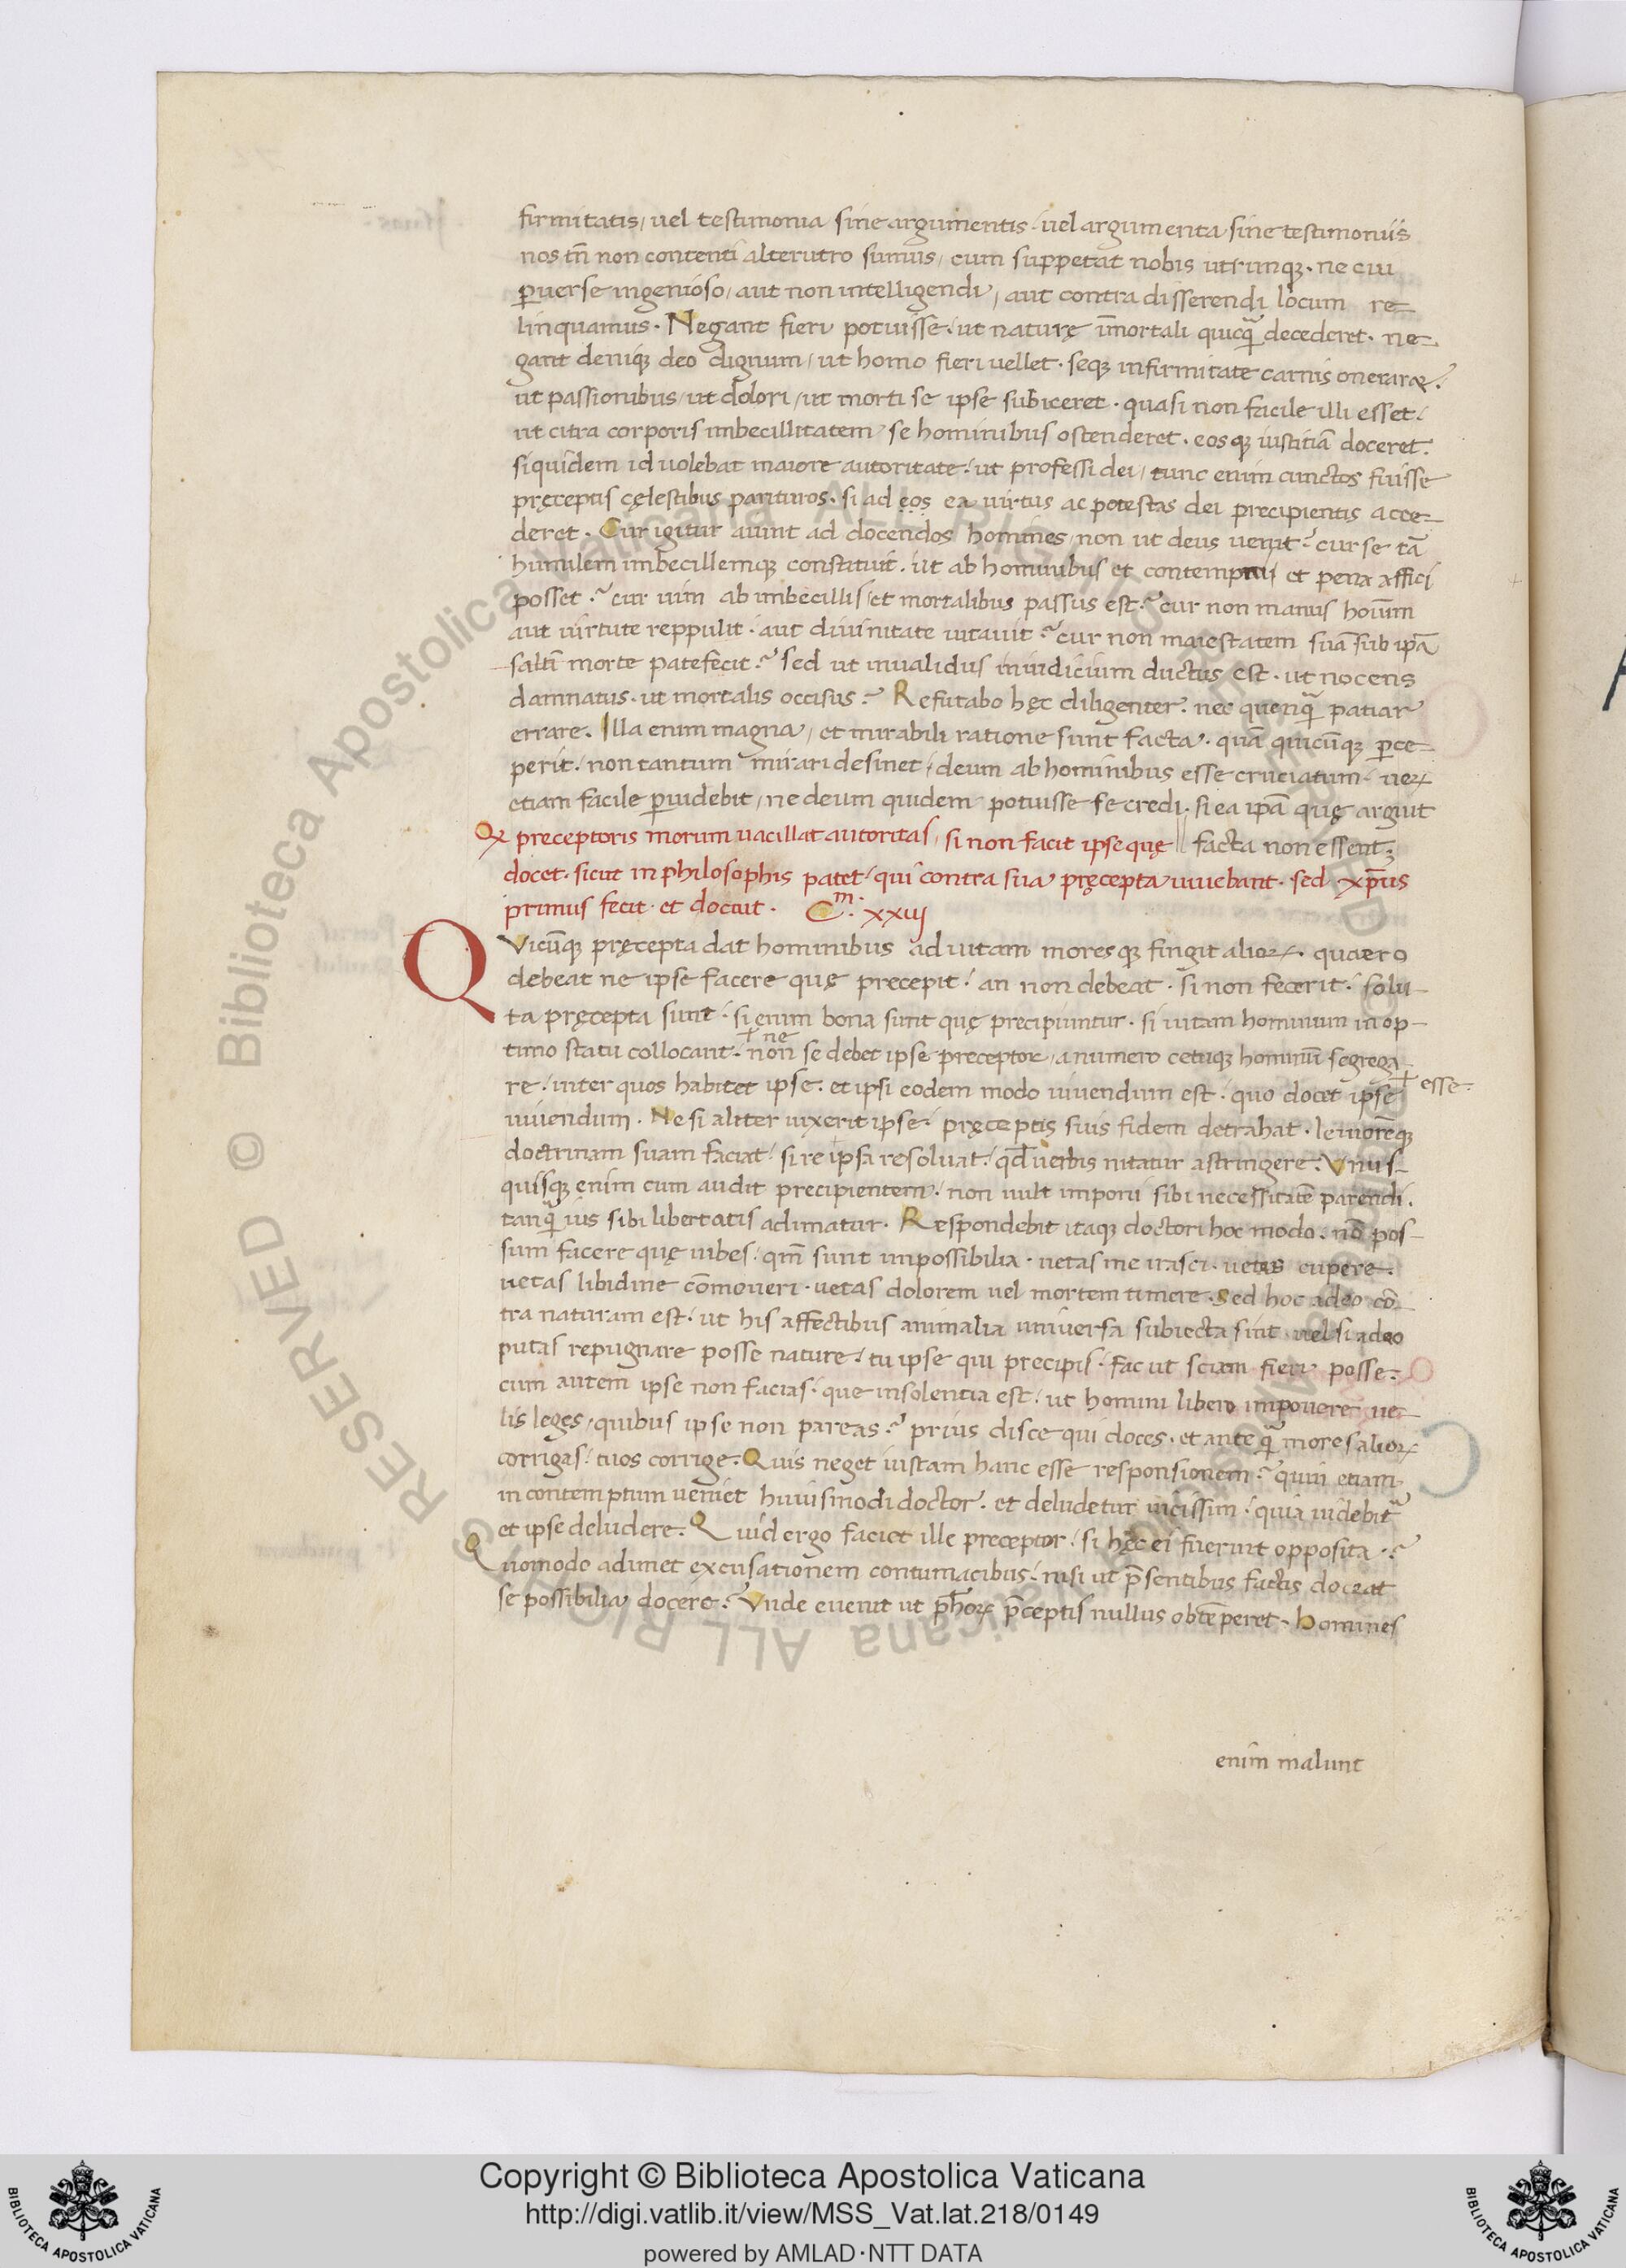 firmitatis, uel testimonia sine argumentis. uel argumenta sine testimoniis
nos tn̄ non contenti alterutro sumus, cum suppetat nobis utrunqꝫ. ne cui
ꝑuerse ingenioso, aut non intelligendi, aut contra disserendi locum re-
linquamus. Negant fieri potuisse. ut naturę īmortali quicq̄ decederet. ne-
gant deniqꝫ deo dignum, ut homo fieri uellet. seqꝫ infirmitate carnis oneraræ.
ut passionibus, ut dolori, ut morti se ipse subiceret. quasi non facile illi esset.
ut citra corporis imbecillitatem se hominibus ostenderet. eosqꝫ iustitiā doceret.
siquidem id uolebat maiore autoritate. ut professi dei, tunc enim cunctos fuisse
pręceptis cęlestibus parituros. si ad eos ea uirtus ac potestas dei precipientis acce-
deret. Cur igitur aiunt ad docendos homines, non ut deus uenit? cur se tā
humilem imbecillemqꝫ constituit. ut ab hominibus et contempni et pena affici
posset? cur uim ab imbecillis, et mortalibus passus est? cur non manus hoīum
aut uirtute reppulit. aut diuinitate uitauit? cur non maiestatem suā sub ipā
saltī morte patefecit? sed ut inualidus in iudicium ductus est. ut nocens
damnatus. ut mortalis occisus? Refutabo hęc diligenter. nec quenq̄ patiar
errare. Illa enim magna, et mirabili ratione sunt facta. quā quicūqꝫ ꝑce-
perit. non tantum mirari desinet, deum ab hominibus esse cruciatum. uerꝝ
etiam facile ꝑuidebit, ne deum quidem potuisse se credi. si ea ipā quę arguit
Qꝫ preceptoris morum uacillat autoritas, si non facit ipse quę || facta non essent;
docet. sicut in philosophis patet. qui contra sua pręcepta uiuebant. sed xp̄us
primus fecit. et docuit. Cm. xxiij
QVicūqꝫ pręcepta dat hominibus ad uitam moresqꝫ fingit alioꝝ. quaero
debeat ne ipse facere quę precepit. an non debeat. si non fecerit. solu-
ta pręcepta sunt. si enim bona sunt quę precipiuntur. si uitam hominum in op-
ne
timo statu collocant. non se debet ipse preceptor, a numero cetuqꝫ hominū segrega-
re. inter quos habitet ipse. et ipsi eodem modo uiuendum est. quo docet ipse
esse.
uiuendum. Ne si aliter uixerit ipse. pręceptis suis fidem detrahat. leuiorēqꝫ
doctrinam suam faciat. si re ipsa resoluat. qd̄ uerbis nitatur astringere. Vnus-
quisqꝫ enim cum audit precipientem. non uult imponi sibi necessitatē parendi.
tanq̄ ius sibi libertatis adimatur. Respondebit itaqꝫ doctori hoc modo. nō pos-
sum facere quę iubes. qm̄ sunt impossibilia. uetas me irasci. uetas cupere.
uetas libidine cōmoueri. uetas dolorem uel mortem timere. Sed hoc adeo cō-
tra naturam est. ut his affectibus animalia uniuersa subiecta sint. uel si adeo
putas repugnare posse nature. tu ipse qui precipis. fac ut sciam fieri posse.
cum autem ipse non facias. que insolentia est. ut homini libero imponere ue-
lis leges, quibus ipse non pareas? prius disce qui doces. et ante q̄ mores alioꝝ
corrigas. tuos corrige. Quis neget iustam hanc esse responsionem? quin etiam
in contemptum ueniet huiusmodi doctor. et deludetur uicissim. quia uidebit̄
et ipse deludere. Quid ergo faciet ille preceptor. si hęc ei fuerint opposita?
Quomodo adimet excusationem contumacibus. nisi ut p̄sentibus factis doceat
se possibilia docere? Vnde euenit ut ph̄oꝝ p̄ceptis nullus obtēperet. homines
enim malunt
Copyright © Biblioteca Apostolica Vaticana
http://digi.vatlib.it/view/MSS_Vat.lat.218/0149
powered by AMLAD·NTT DATA